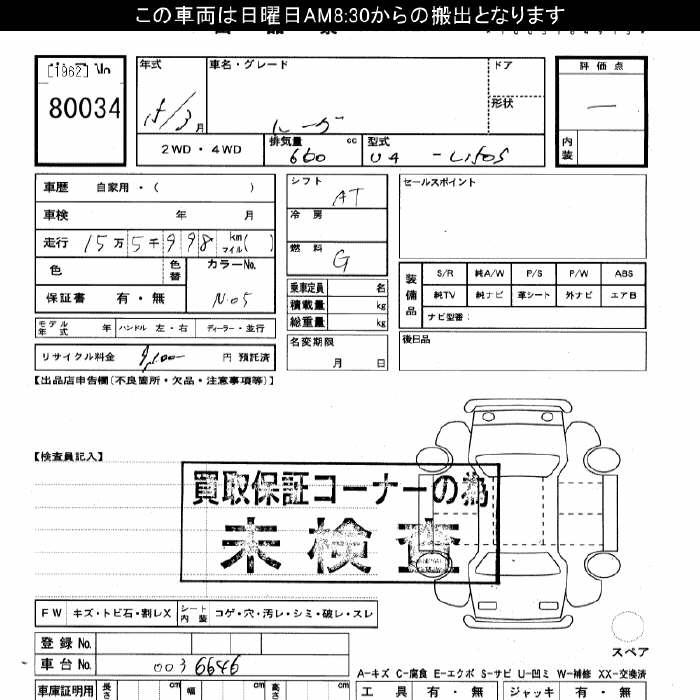 この車両は日曜日AM8:30からの搬出となります
[1962] No
80034
年式
15/3月
車名・グレード
ドア
形状
評価点
内装
2WD・4WD
排気量
660 cc
型式
車歴 自家用・( )
車検 年 月
走行 15万5千998 km マイル( )
色
色替
カラーNo.
N05
保証書 有・無
シフト AT
冷房
燃料 G
乗車定員 名
積載量 kg
総重量 kg
セールスポイント
装備品
S/R 純A/W P/S P/W ABS
純TV 純ナビ 革シート 外ナビ エアB
ナビ型番:
モデル年式 年 ハンドル 左・右 ディーラー・並行
リサイクル料金 円 預託済
名変期限
月 日
後日品
【出品店申告欄(不良箇所・欠品・注意事項等)】
【検査員記入】
買取保証コーナーの為
未検査
FW キズ・トビ石・割レX シート内装 コゲ・穴・汚レ・シミ・破レ・スレ
登録No.
車台No. 0036646
スペア
A-キズ C-腐食 E-エクボ S-サビ U-凹ミ W-補修 XX-交換済
車庫証明用 長さ cm 幅 cm 高さ cm
工具 有・無 ジャッキ 有・無